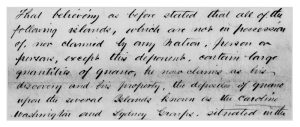 That believing as before stated that all of the
following islands, which are not in possession
of, nor claimed by any nation, person or
persons, except this deponent, contain large
quantities of guano, he now claims as his
discovery and his property, the deposites of guano
upon the several Islands known as the Caroline
Washington and Sydney Groups. situated in the